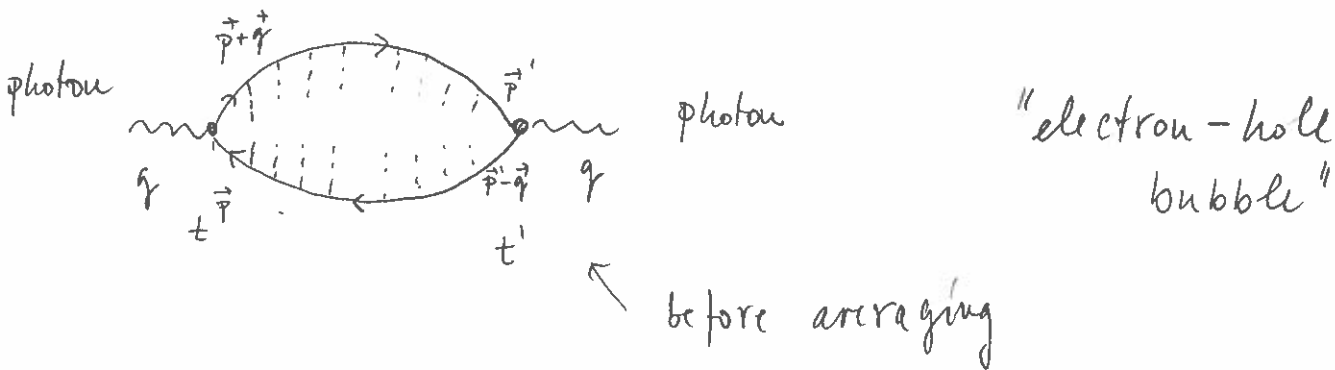 p⃗+q⃗
photon
p⃗'
photon
"electron-hole
bubble"
q
p⃗
p⃗'-q⃗
q
t
t'
before averaging